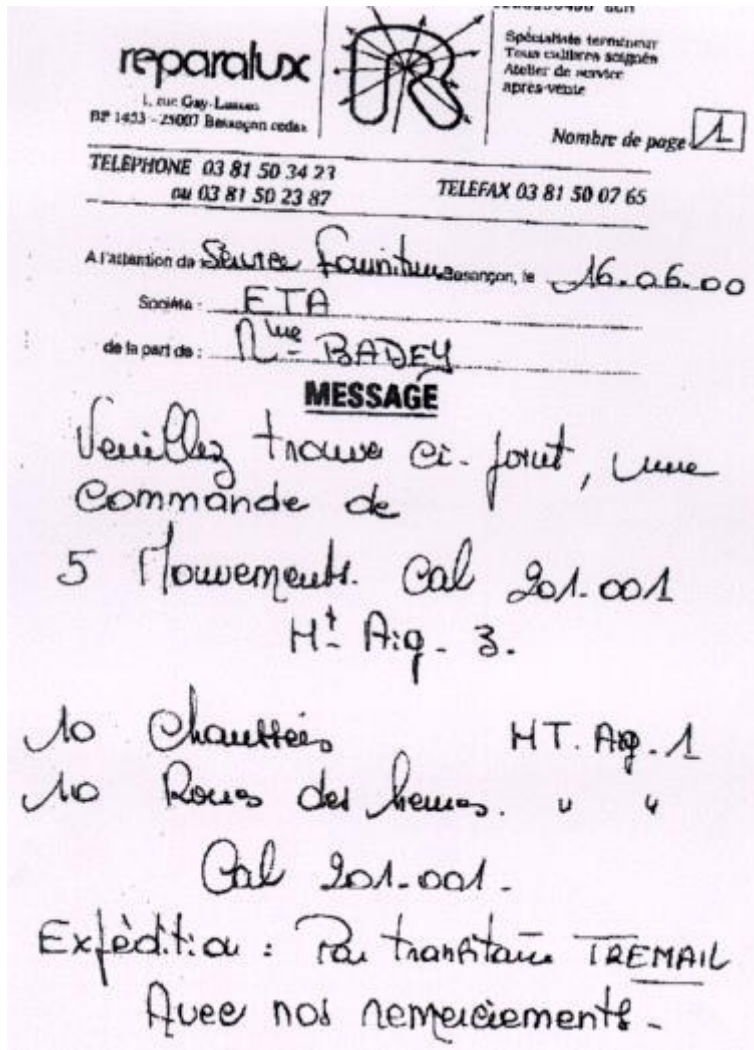 reparalux
1, rue Gay-Lussac
BP 1453 - 25007 Besançon cedex
R
Spécialiste termineur
Tous calibres soignés
Atelier de service
après-vente
Nombre de page 1
TELEPHONE 03 81 50 34 23
ou 03 81 50 23 87
TELEFAX 03 81 50 07 65
A l'attention de Service fournitures Besançon, le 16.06.00
Société : ETA
de la part de : Mme BADEY
MESSAGE
Veuillez trouver ci-joint, une
Commande de
5 Mouvements. Cal 201.001
Ht Aig. 3.
10 Chaussées HT. Aig. 1
10 Roues des heures. " "
Cal 201-001-
Expédition : Par transitaire TREMAIL
Avec nos remerciements-